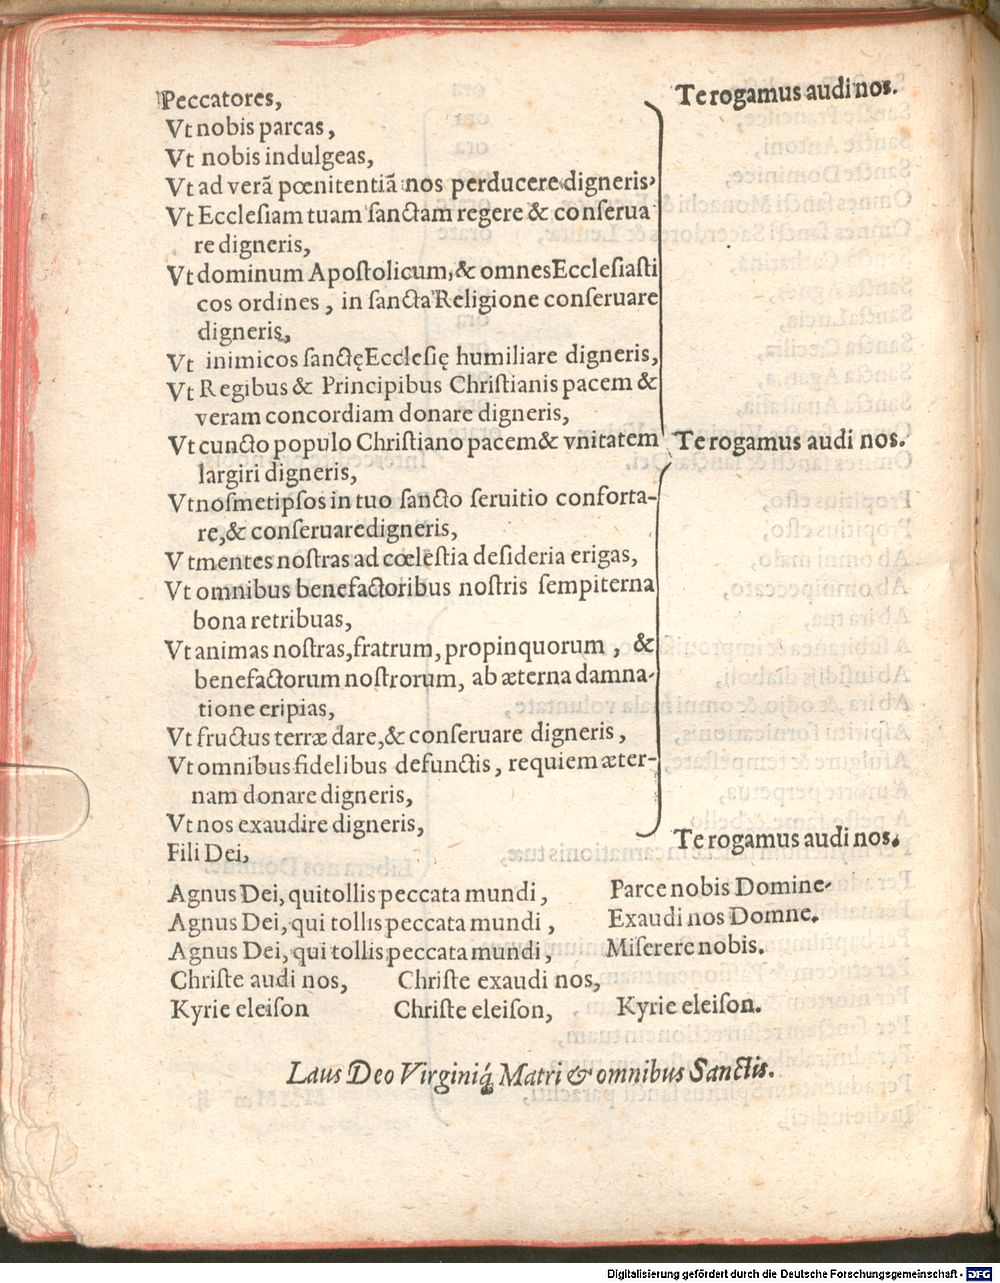 Peccatores, Te rogamus audi nos.
Vt nobis parcas,
Vt nobis indulgeas,
Vt ad verã pœnitentiã nos perducere digneris,
Vt Ecclesiam tuam sanctam regere & conserua
re digneris,
Vt dominum Apostolicum, & omnes Ecclesiasti
cos ordines, in sancta Religione conseruare
digneris,
Vt inimicos sanctę Ecclesię humiliare digneris,
Vt Regibus & Principibus Christianis pacem &
veram concordiam donare digneris,
Vt cuncto populo Christiano pacem & vnitatem Te rogamus audi nos.
largiri digneris,
Vt nosmetipsos in tuo sancto seruitio conforta-
re, & conseruare digneris,
Vt mentes nostras ad cœlestia desideria erigas,
Vt omnibus benefactoribus nostris sempiterna
bona retribuas,
Vt animas nostras, fratrum, propinquorum, &
benefactorum nostrorum, ab æterna damna-
tione eripias,
Vt fructus terræ dare, & conseruare digneris,
Vt omnibus fidelibus defunctis, requiem æter-
nam donare digneris,
Vt nos exaudire digneris,
Fili Dei, Te rogamus audi nos.
Agnus Dei, qui tollis peccata mundi, Parce nobis Domine.
Agnus Dei, qui tollis peccata mundi, Exaudi nos Domne.
Agnus Dei, qui tollis peccata mundi, Miserere nobis.
Christe audi nos, Christe exaudi nos,
Kyrie eleison Christe eleison, Kyrie eleison.
Laus Deo Virginiq́; Matri & omnibus Sanctis.
Digitalisierung gefördert durch die Deutsche Forschungsgemeinschaft - DFG